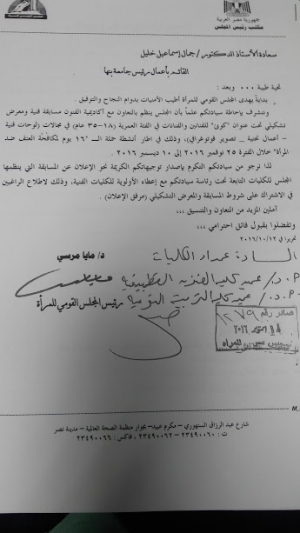 جمهورية مصر العربية
مكتب رئيس المجلس
سعادة الأستاذ الدكتور / جمال إسماعيل خليل
القائم بأعمال رئيس جامعة بنها
تحية طيبة ... وبعد :
بداية يهدى المجلس القومي للمرأة أطيب الأمنيات بدوام النجاح والتوفيق .
ونتشرف بإحاطة سيادتكم علماً بأن المجلس ينظم بالتعاون مع أكاديمية الفنون مسابقة فنية ومعرض
تشكيلي تحت عنوان "كوني" للفنانين والفنانات في الفئة العمرية (١٨-٣٥ عام) في مجالات (لوحات فنية
- أعمال نحتية - تصوير فوتوغرافي)، وذلك في إطار أنشطة حملة الـ "١٦ يوم لمكافحة العنف ضد
المرأة" خلال الفترة ٢٥ نوفمبر ٢٠١٦ إلى ١٠ ديسمبر ٢٠١٦ .
لذا نرجو من سيادتكم التكرم بإصدار توجيهاتكم الكريمة نحو الإعلان عن المسابقة التي ينظمها
المجلس للكليات التابعة تحت رئاسة سيادتكم مع إعطاء الأولوية للكليات الفنية، وذلك لاطلاع الراغبين
في الاشتراك على شروط المسابقة والمعرض التشكيلي (مرفق الإعلان) .
آملين المزيد من التعاون والتنسيق ...
وتفضلوا بقبول فائق احترامي ...
تحريرا في ٢٠١٦/١٠/١٢
السادة عمداء الكليات
د/ مايا مرسي
أ.د/ عميد كلية الفنون التطبيقية
أ.د/ عميد كلية التربية النوعية
رئيس المجلس القومي للمرأة
صادر رقم
شارع عبد الرزاق السنهوري - مكرم عبيد - بجوار منظمة الصحة العالمية - مدينة نصر
ت : ٢٣٤٩٠٠٦٠ - ٢٣٤٩٠٠٦٢ ، فاكس : ٢٣٤٩٠٠٦٦